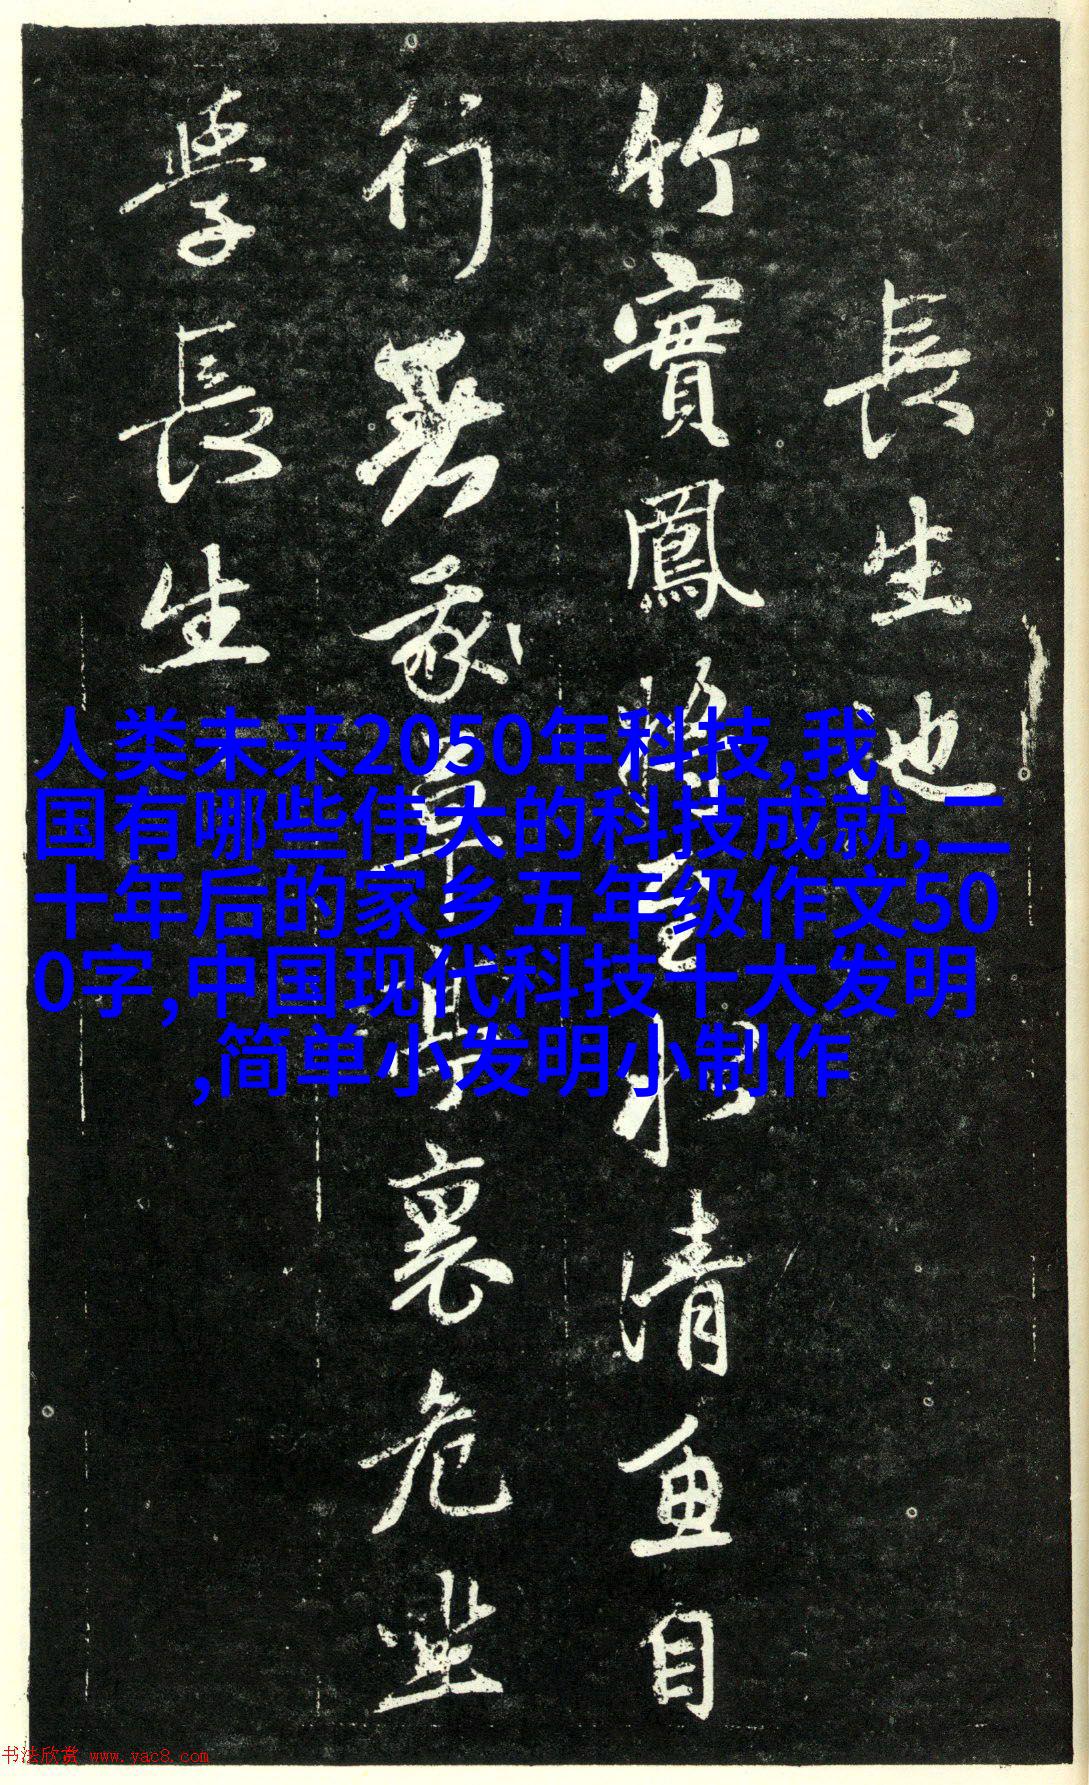 長生池
竹實鳳將至水清魚自
行 裏危坐
學長生
人类未来2050年科技,我
国有哪些伟大的科技成就,二
十年后的家乡五年级作文50
0字,中国现代科技十大发明
,简单小发明小制作
书法欣赏 www.yac8.com